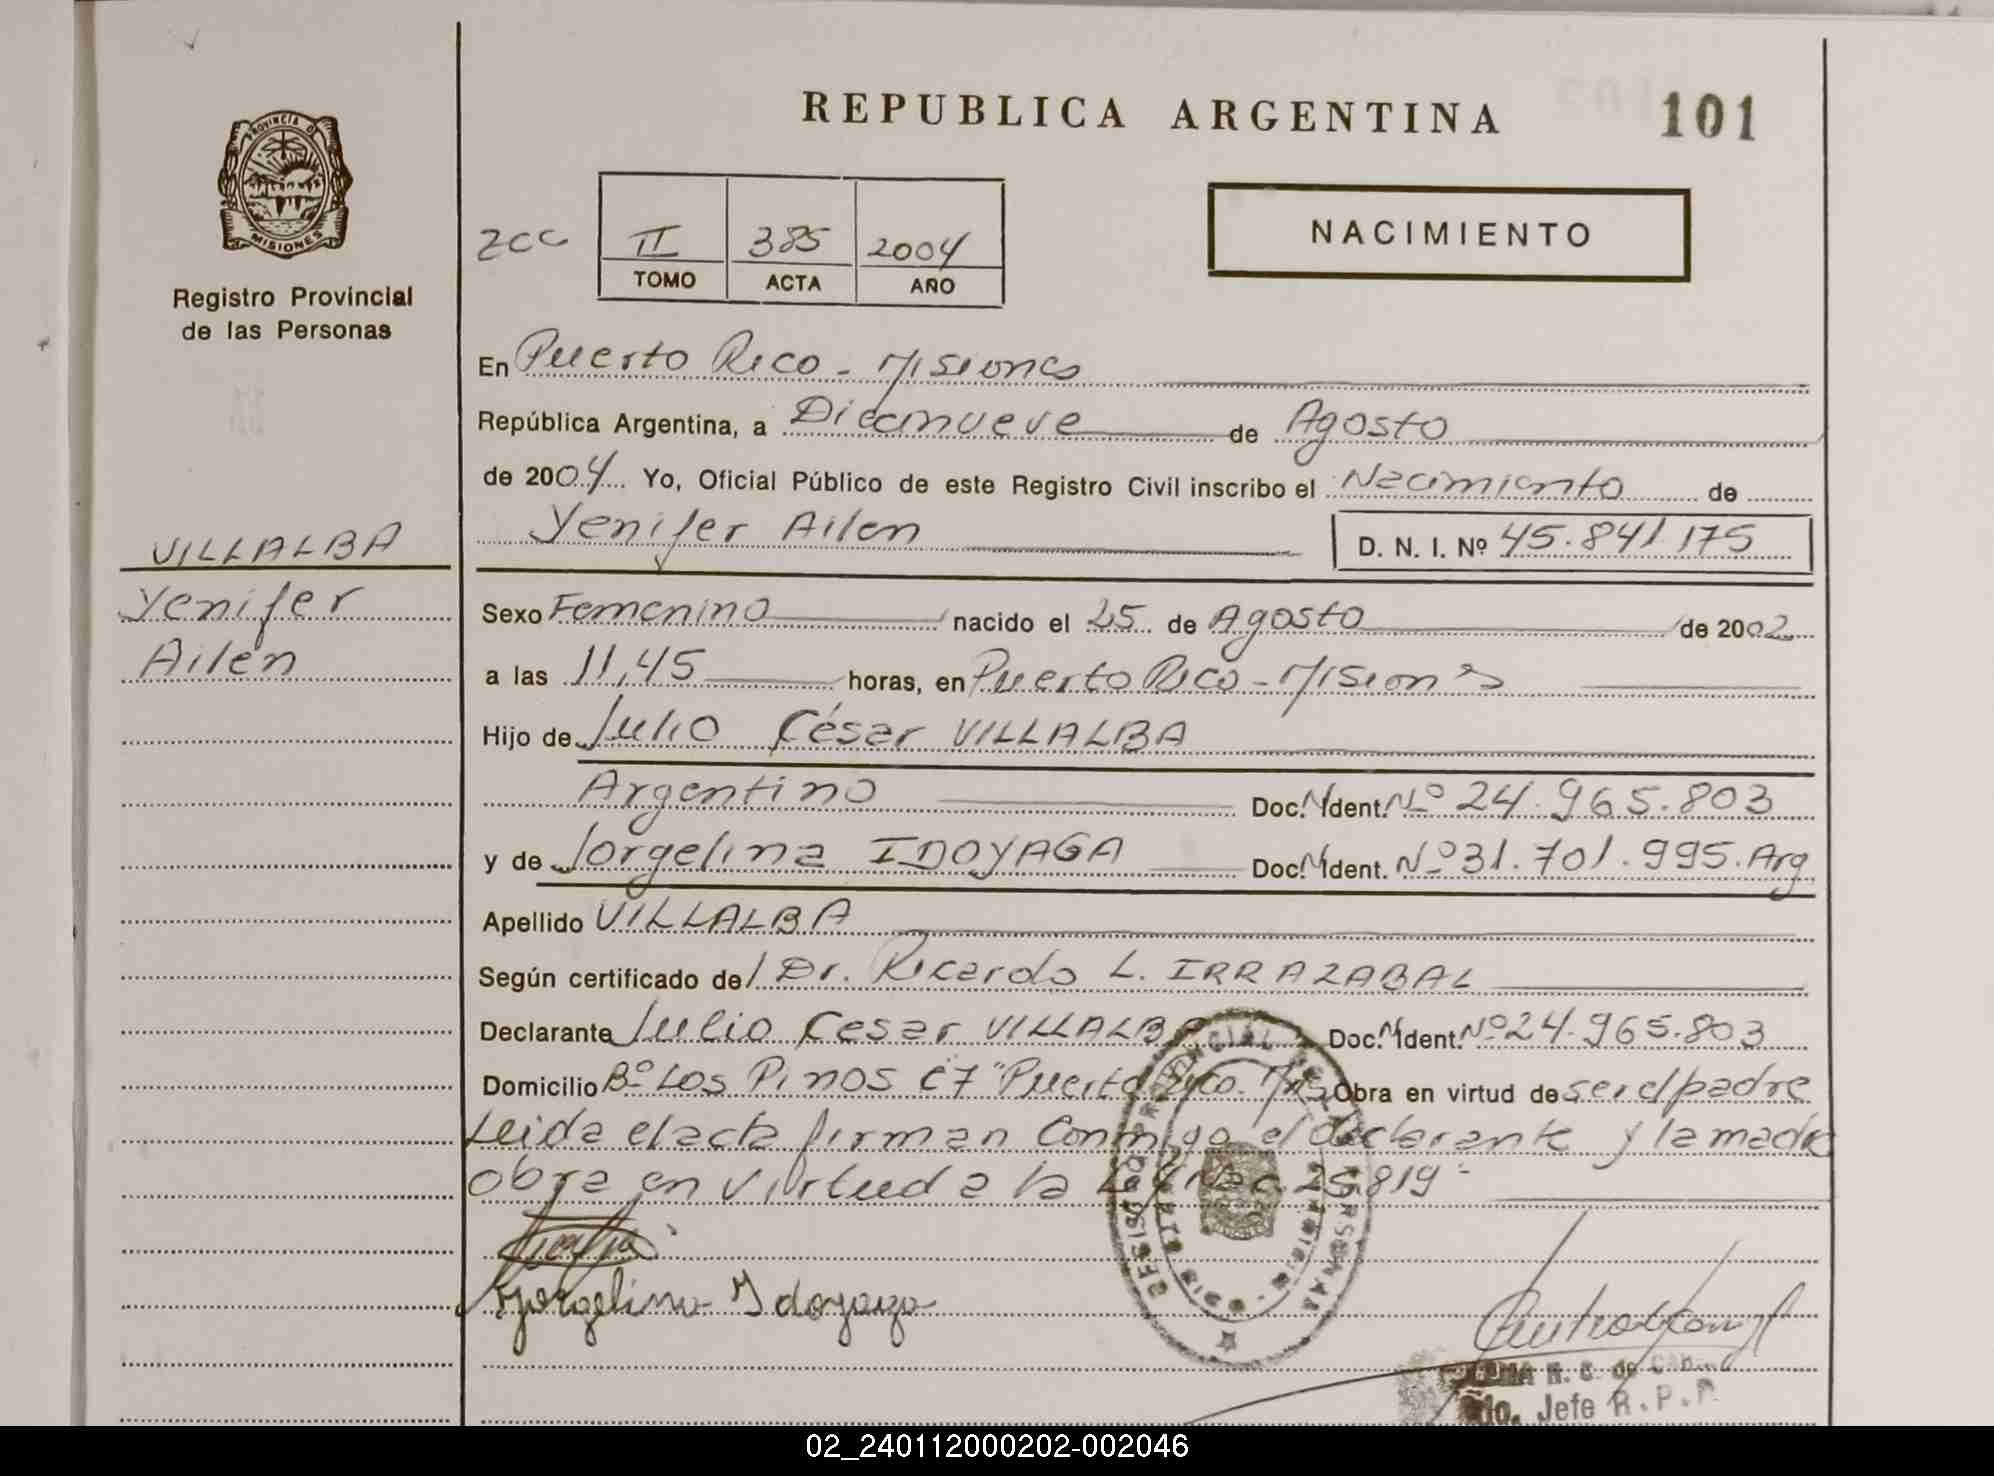 REPUBLICA ARGENTINA
101
PROVINCIA DE
MISIONES
Registro Provincial
de las Personas
II 385 2004
TOMO ACTA AÑO
NACIMIENTO
En Puerto Rico - Misiones
República Argentina, a Diecinueve de Agosto
de 2004 Yo, Oficial Público de este Registro Civil inscribo el Nacimiento de
Yenifer Ailen D. N. I. Nº 45.841 175
VILLALBA
Yenifer
Ailen
Sexo Femenino nacido el 25 de Agosto de 2002
a las 11,45 horas, en Puerto Rico - Misiones
Hijo de Julio César VILLALBA
Argentino Doc. N Ident. Nº 24.965.803
y de Jorgelina IDOYAGA Doc. N Ident. Nº 31.701.995. Arg
Apellido VILLALBA
Según certificado del Dr. Ricardo L. IRRAZABAL
Declarante Julio Cesar VILLALBA Doc. N Ident. Nº 24.965.803
Domicilio Bº Los Pinos C7 "Puerto Rico. Mns Obra en virtud de ser el padre
Leida el acta firman Conmigo el declarante y la madre
obra en virtud a la Ley Nac. 25.819
REGISTRO PROVINCIAL DE LAS PERSONAS
Jorgelina Idoyaga
R. C. de
Jefe R. P. P.
02_240112000202-002046